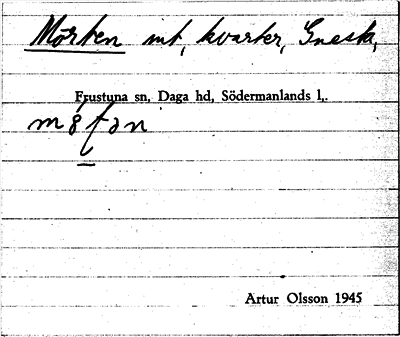 Mörten int, kvarter, Gnesta,
Frustuna sn, Daga hd, Södermanlands l,.
Artur Olsson 1945